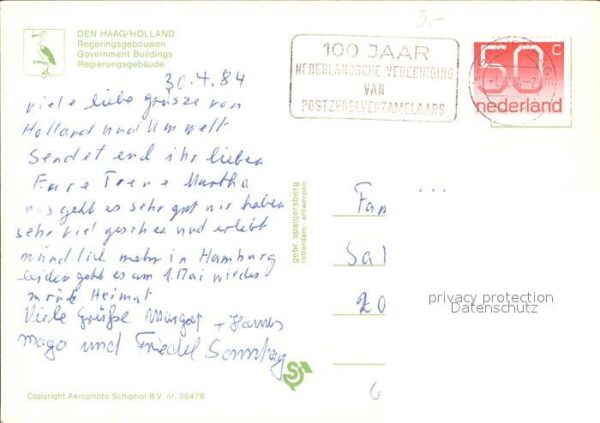 DEN HAAG/HOLLAND
Regeringsgebouwen
Government Buildings
Regierungsgebäude
5.-
100 JAAR
NEDERLANDSCHE VEREENIGING
VAN
POSTZEGELVERZAMELAARS
50 c
nederland
30.4.84
viele liebe grüsze von
Holland und Umwelt
Sendet euch ihr lieben
Eure Trene Martha
uns geht es sehr gut wir haben
sehr viel gesehen und erlebt
mündlich mehr in Hamburg
leider geht es am 1. Mai wieder
zurück Heimat
Viele Grüße Margot + Hannes
und Friedel
gebr. spanjersberg
rotterdam - antwerpen
Fam
Sal
20
privacy protection
Datenschutz
Copyright Aerophoto Schiphol B.V. nr. 35478